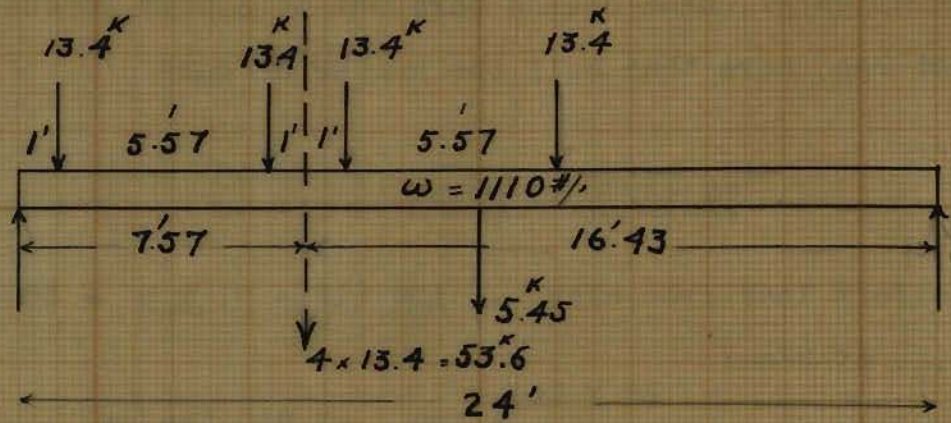 13.4ᴷ 13.4ᴷ 13.4ᴷ 13.4ᴷ
1' 5.57' 1' 1' 5.57'
ω = 1110 #/,
7.57' 16.43'
5.45ᴷ
4 x 13.4 = 53.6ᴷ
24'